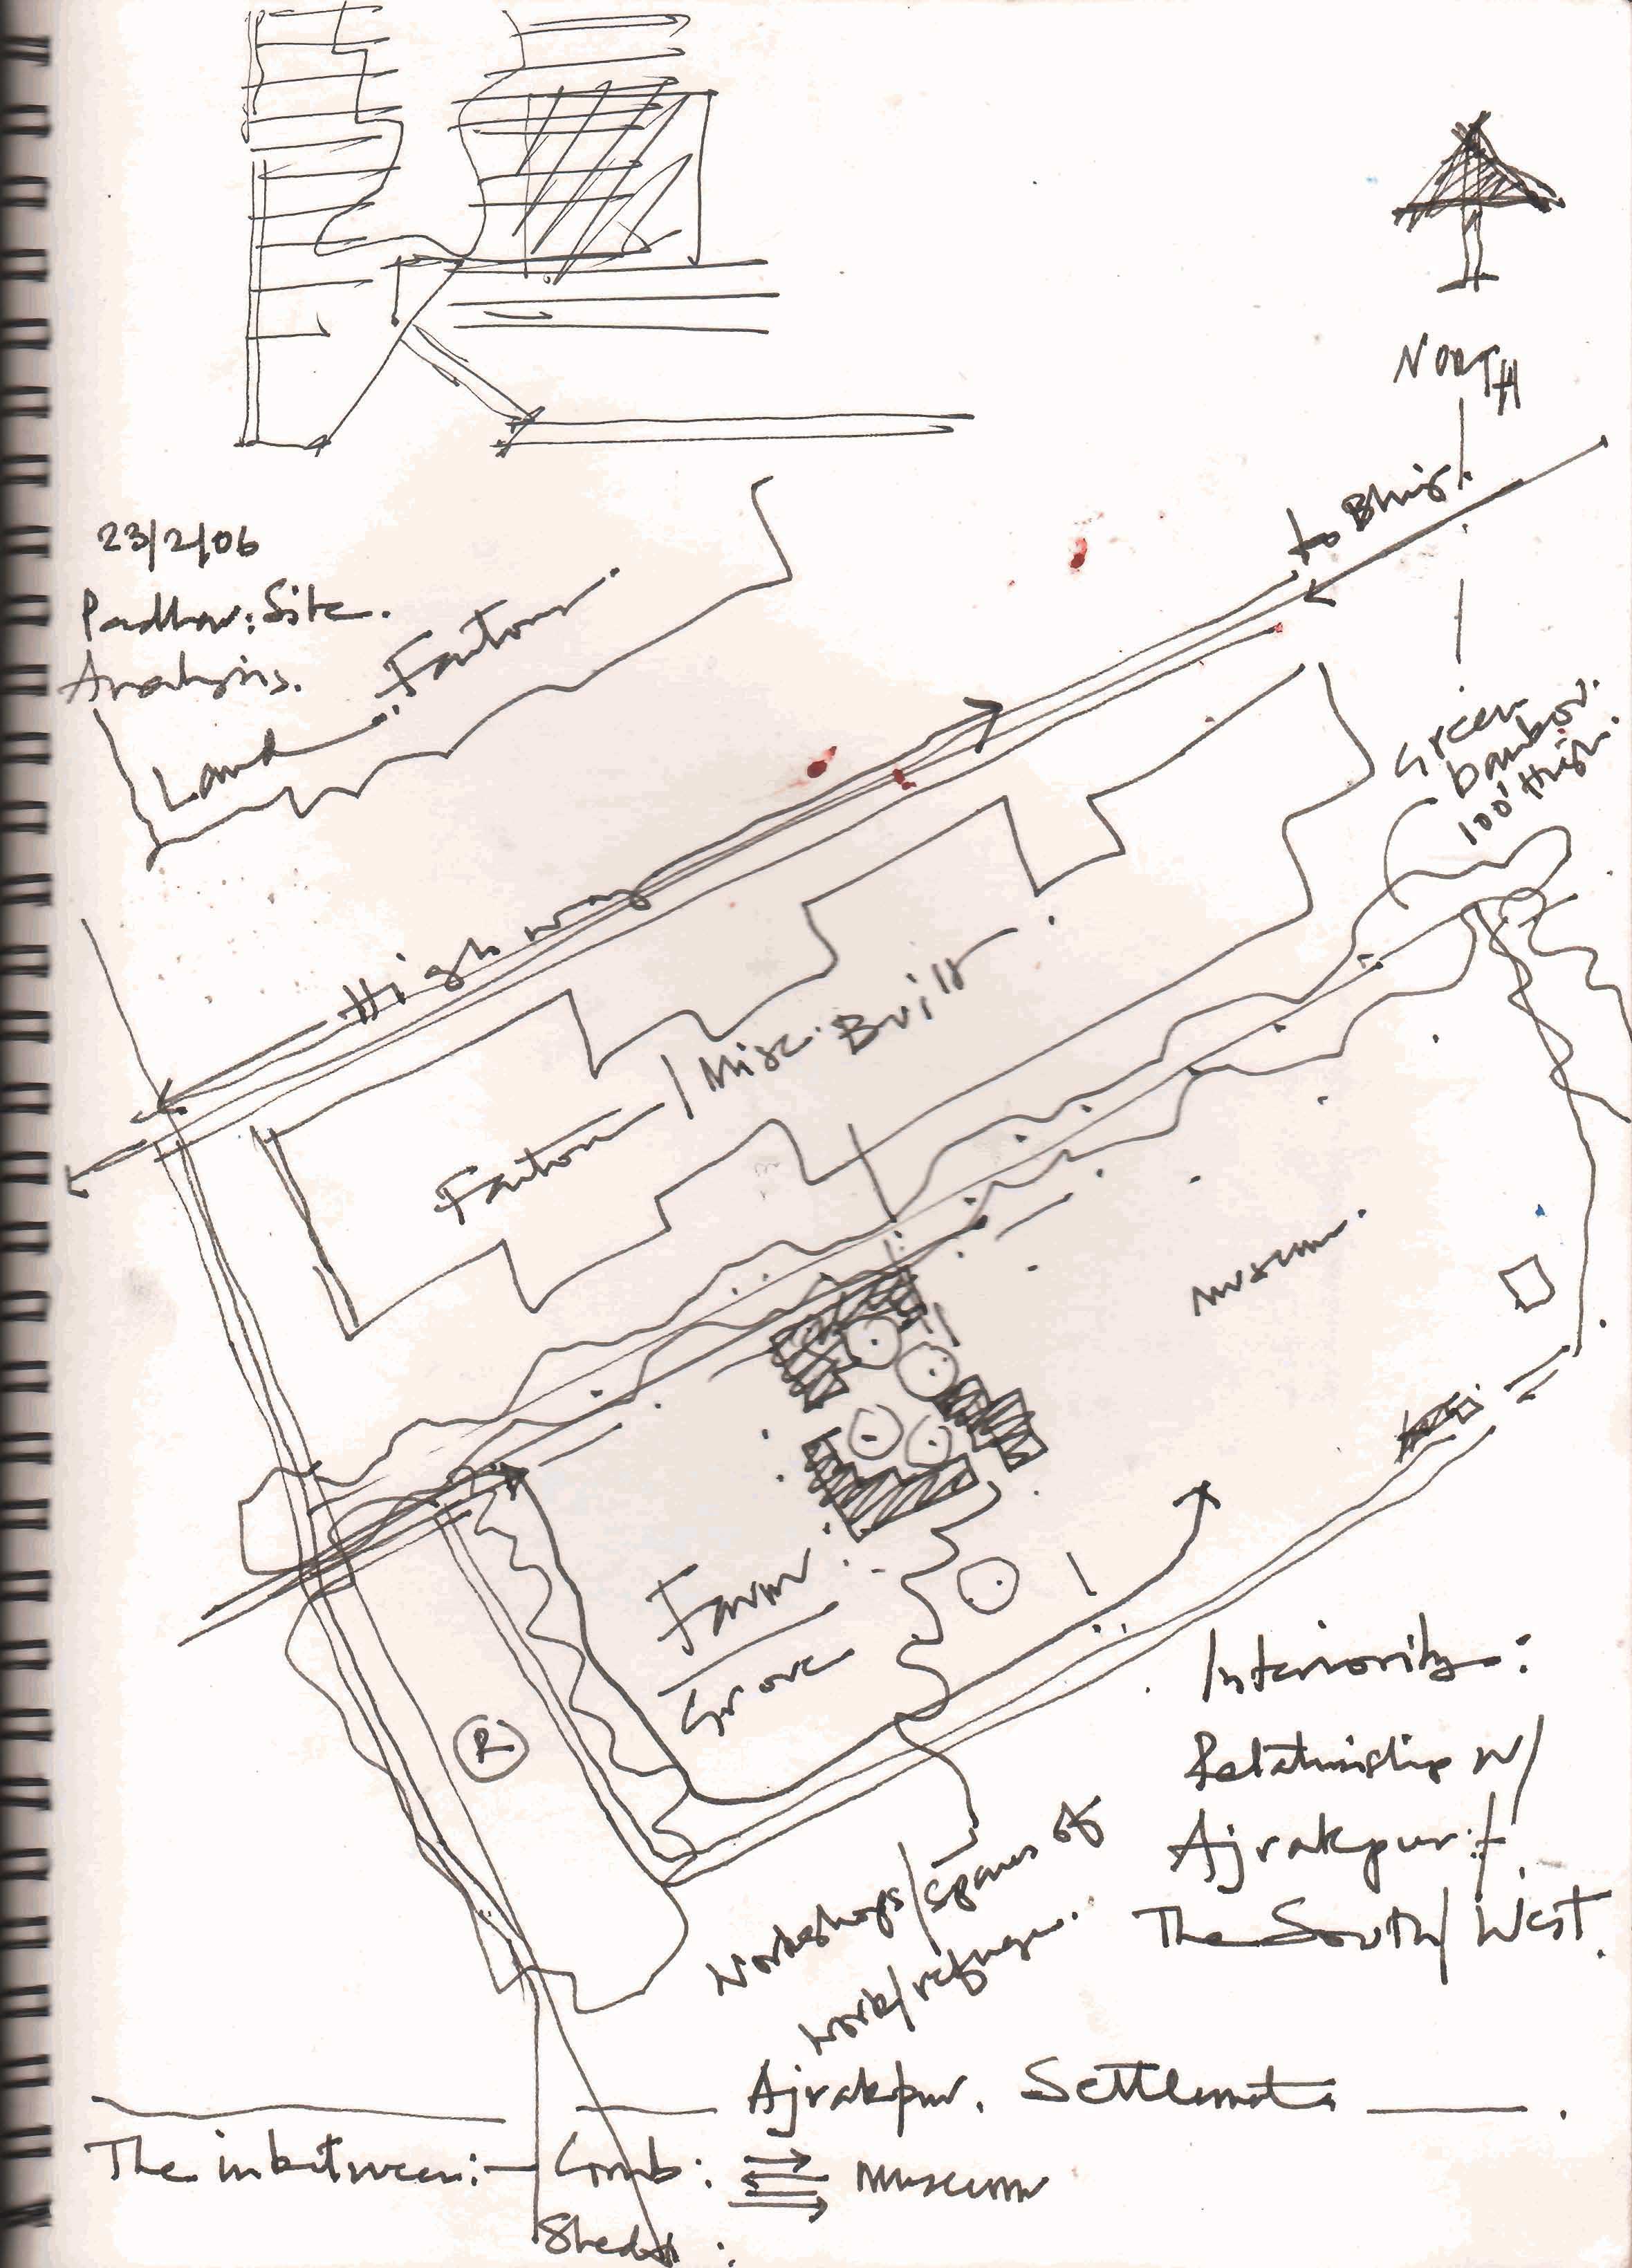 NORTH
to Bhuj
23/2/06
Padhar: Site.
Analysis.
Land :
Green
bamboo.
100' High.
Highway
/ Misc. Built
museum.
Farm :
Grove
R
Interiority :
Relationship w/
Ajrakpur :
The South/West.
Workshops/spaces of
work/refuge.
Ajrakpur. Settlements
The inbetween :- Comb : museum
Sheds :